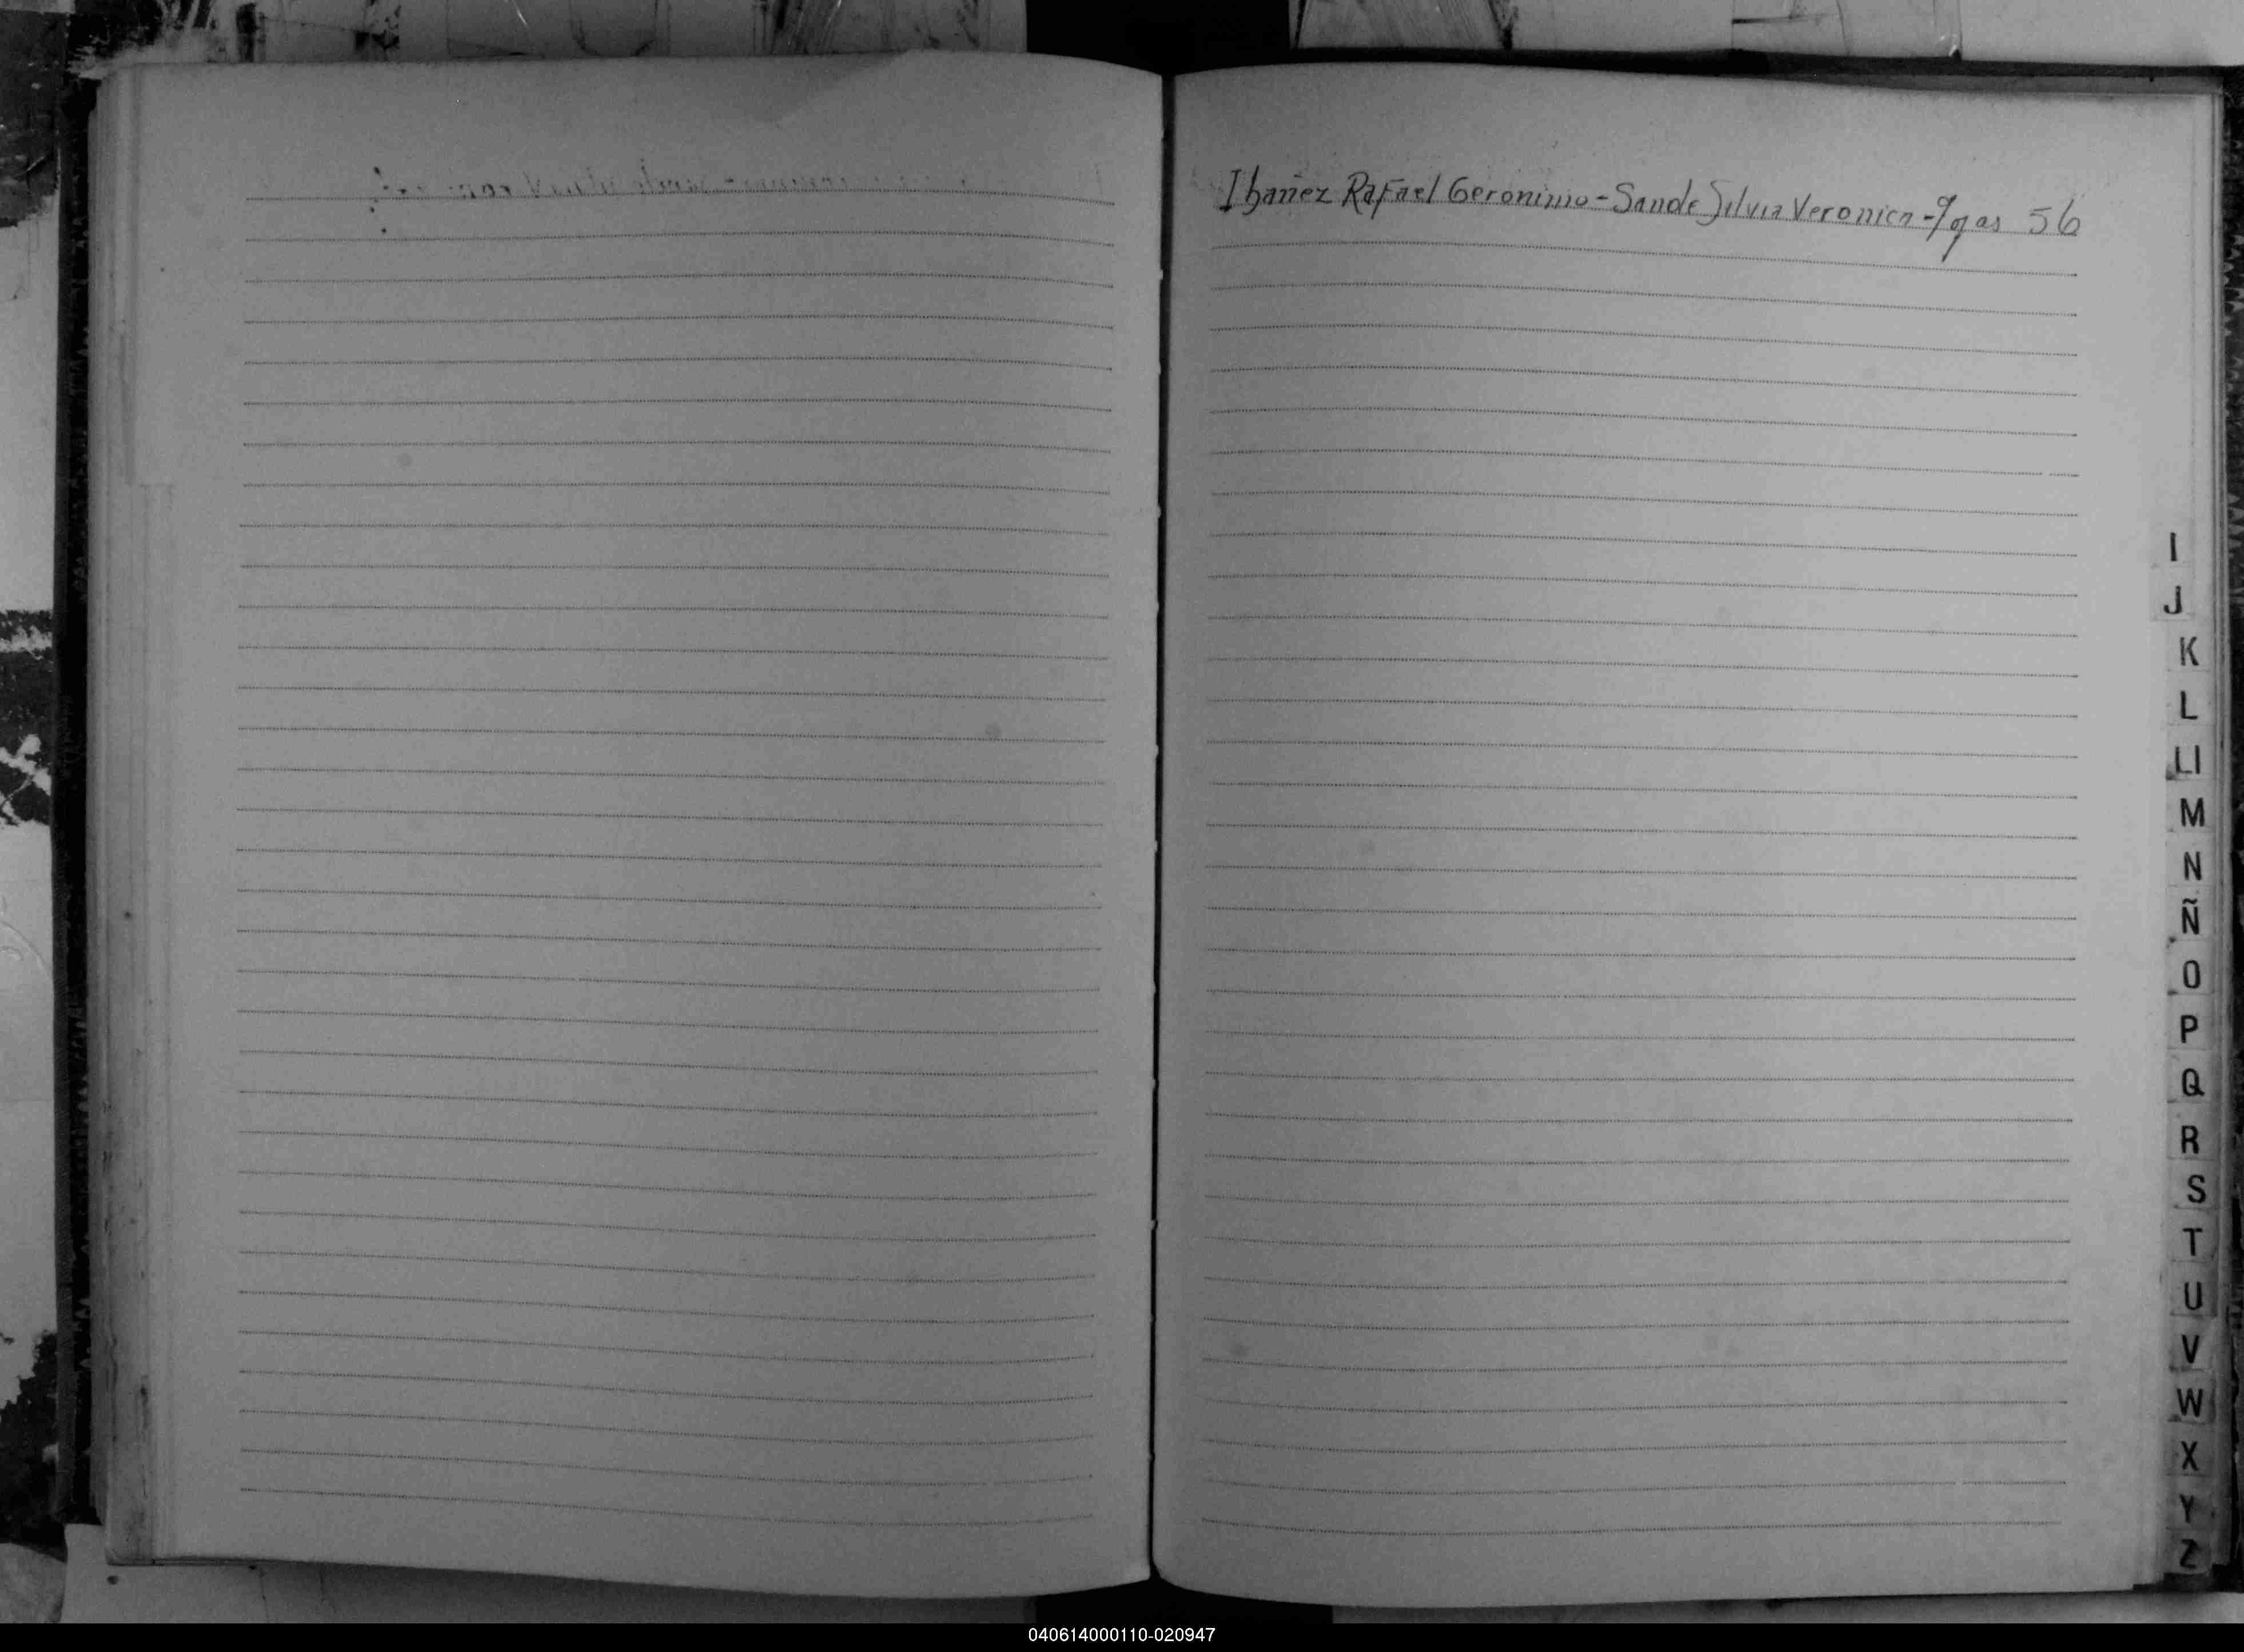 Ibañez Rafael Geronimo - Sande Silvia Veronica - Pgas 56
I
J
K
L
Ll
M
N
Ñ
O
P
Q
R
S
T
U
V
W
X
Y
Z
040614000110-020947